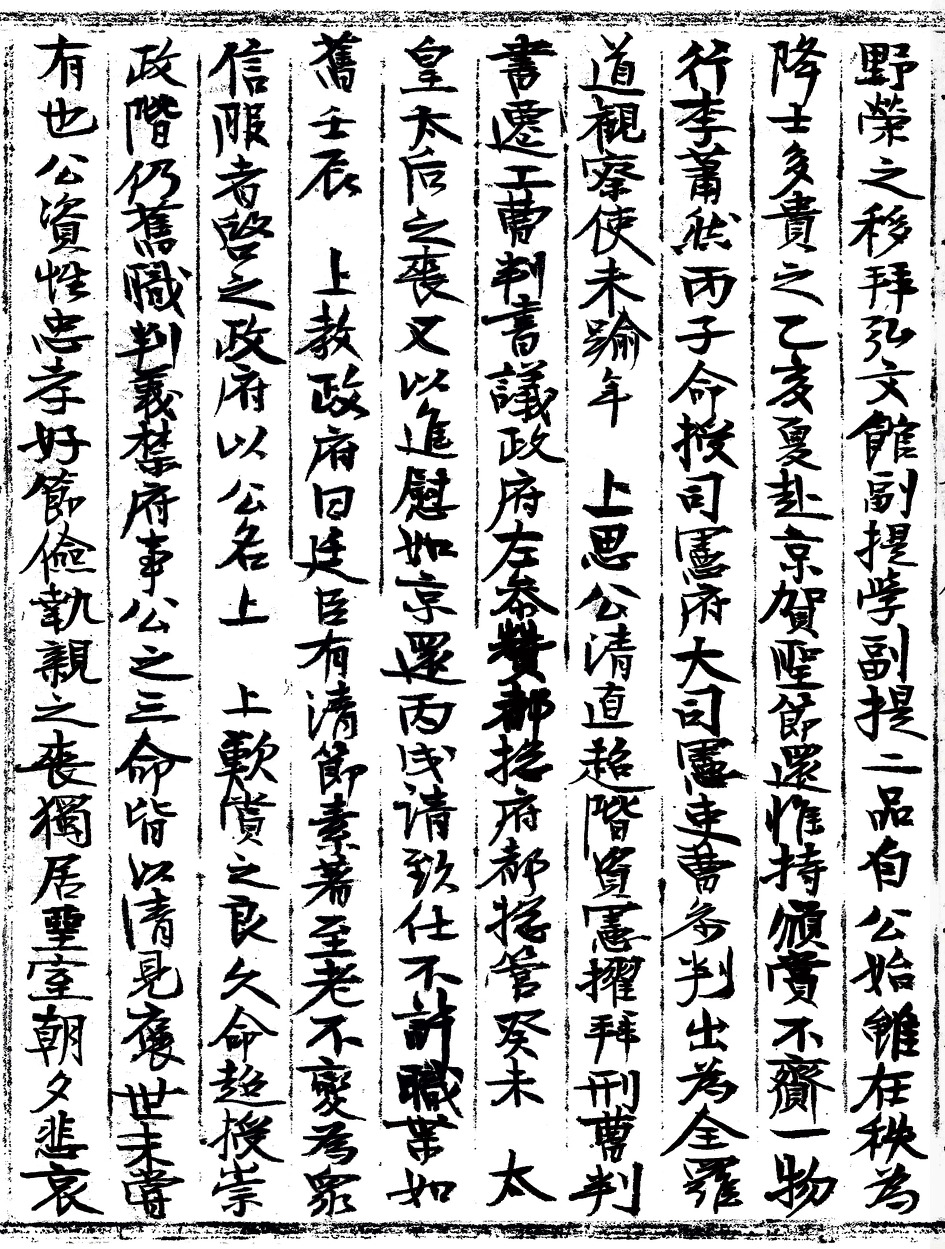 野榮之移拜弘文館副提學副提二品自公始雖在秩為
降士多貴之乙亥夏赴京賀聖節還惟持頒賞不齎一物
行李蕭然丙子命授司憲府大司憲吏曹參判出為全羅
道觀察使未踰年 上思公清直超階資憲擢拜刑曹判
書遷工曹判書議政府左參贊都摠府都摠管癸未 太
皇太后之喪又以進慰如京還丙戌請致仕不許職業如
舊壬辰 上教政府曰廷臣有清節素著至老不變為眾
信服者啓之政府以公名上 上歎賞之良久命超授崇
政階仍舊職判義禁府事公之三命皆以清見褒世未嘗
有也公資性忠孝好節儉執親之喪獨居堊室朝夕悲哀